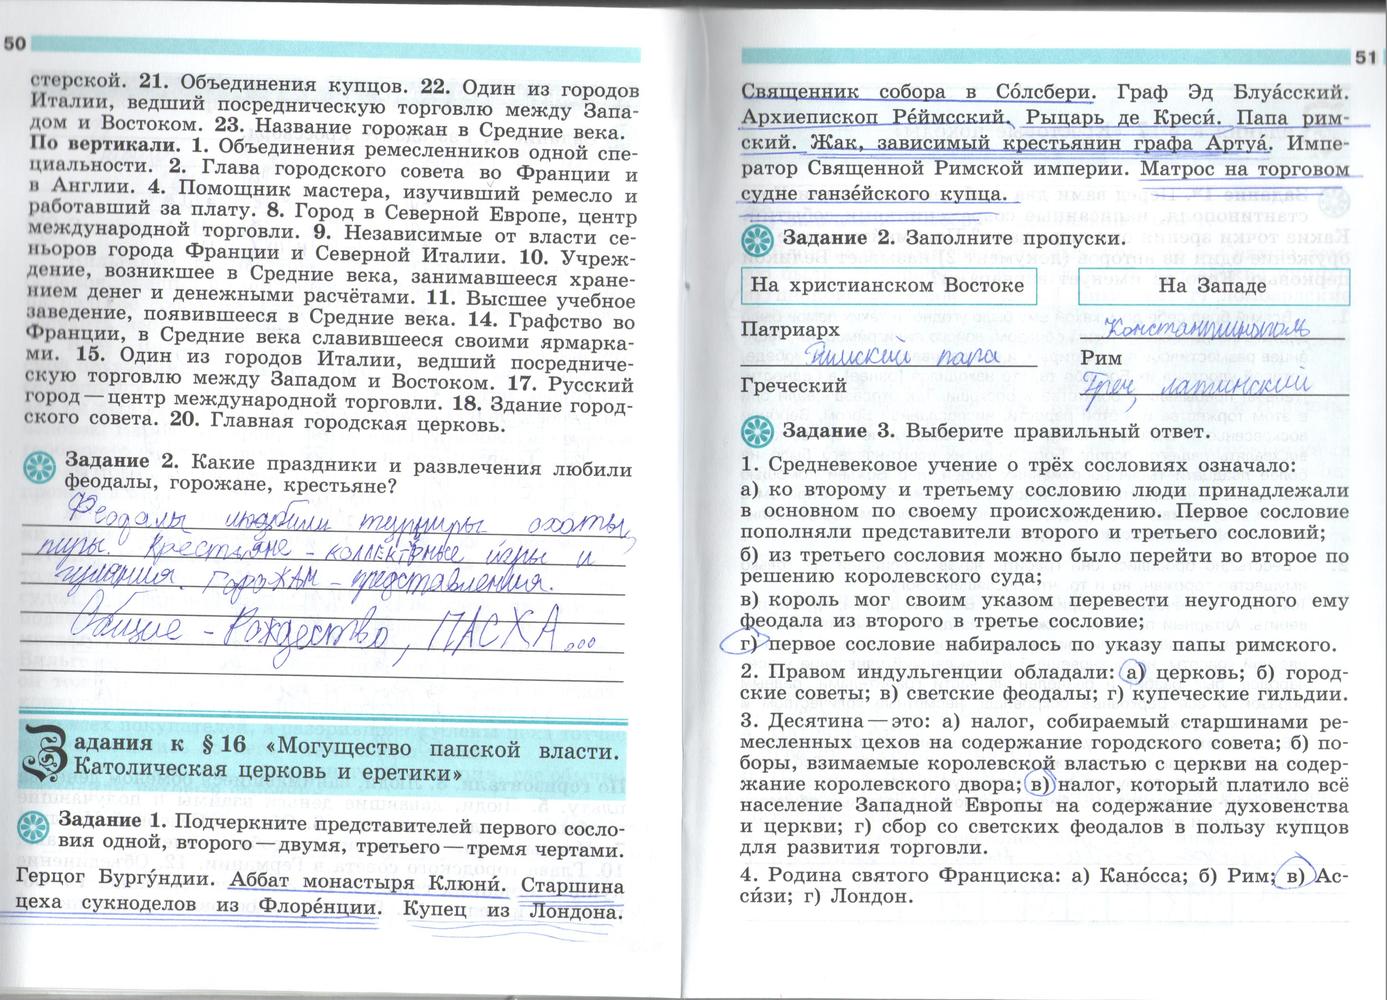 50
стерской. 21. Объединения купцов. 22. Один из городов
Италии, ведший посредническую торговлю между Запа-
дом и Востоком. 23. Название горожан в Средние века.
По вертикали. 1. Объединения ремесленников одной спе-
циальности. 2. Глава городского совета во Франции и
в Англии. 4. Помощник мастера, изучивший ремесло и
работавший за плату. 8. Город в Северной Европе, центр
международной торговли. 9. Независимые от власти се-
ньоров города Франции и Северной Италии. 10. Учреж-
дение, возникшее в Средние века, занимавшееся хране-
нием денег и денежными расчётами. 11. Высшее учебное
заведение, появившееся в Средние века. 14. Графство во
Франции, в Средние века славившееся своими ярмарка-
ми. 15. Один из городов Италии, ведший посредниче-
скую торговлю между Западом и Востоком. 17. Русский
город — центр международной торговли. 18. Здание город-
ского совета. 20. Главная городская церковь.
Задание 2. Какие праздники и развлечения любили
феодалы, горожане, крестьяне?
Феодалы любили турниры охоты,
пиры. Крестьяне - коллективные игры и
гуляния. Горожан - представления.
Общие - Рождество, ПАСХА...
Задания к § 16 «Могущество папской власти.
Католическая церковь и еретики»
Задание 1. Подчеркните представителей первого сосло-
вия одной, второго — двумя, третьего — тремя чертами.
Герцог Бургу́ндии. Аббат монастыря Клюни́. Старшина
цеха сукноделов из Флоре́нции. Купец из Лондона.
51
Священник собора в Со́лсбери. Граф Эд Блуа́сский.
Архиепископ Ре́ймсский. Рыцарь де Креси́. Папа рим-
ский. Жак, зависимый крестьянин графа Артуа́. Импе-
ратор Священной Римской империи. Матрос на торговом
судне ганзе́йского купца.
Задание 2. Заполните пропуски.
На христианском Востоке
На Западе
Патриарх
Константинополь
Римский папа
Рим
Греческий
Греч, латинский
Задание 3. Выберите правильный ответ.
1. Средневековое учение о трёх сословиях означало:
а) ко второму и третьему сословию люди принадлежали
в основном по своему происхождению. Первое сословие
пополняли представители второго и третьего сословий;
б) из третьего сословия можно было перейти во второе по
решению королевского суда;
в) король мог своим указом перевести неугодного ему
феодала из второго в третье сословие;
г) первое сословие набиралось по указу папы римского.
2. Правом индульгенции обладали: а) церковь; б) город-
ские советы; в) светские феодалы; г) купеческие гильдии.
3. Десятина — это: а) налог, собираемый старшинами ре-
месленных цехов на содержание городского совета; б) по-
боры, взимаемые королевской властью с церкви на содер-
жание королевского двора; в) налог, который платило всё
население Западной Европы на содержание духовенства
и церкви; г) сбор со светских феодалов в пользу купцов
для развития торговли.
4. Родина святого Франциска: а) Кано́сса; б) Рим; в) Ас-
си́зи; г) Лондон.